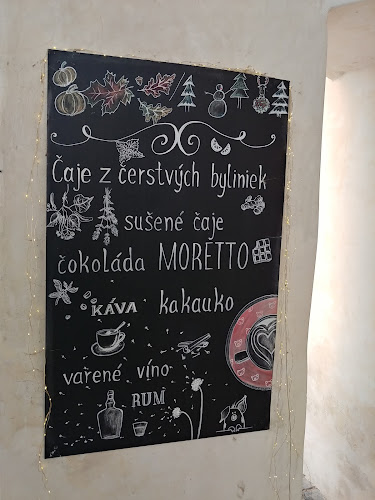 Čaje z čerstvých byliniek
sušené čaje
čokoláda MORETTO
KÁVA kakauko
vařené víno
RUM